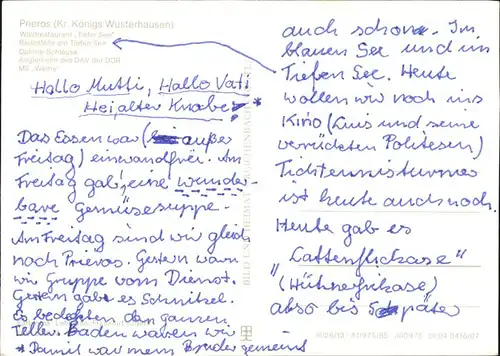 Prieros (Kr. Königs Wusterhausen)
Waldrestaurant „Tiefer See"
Badestelle am Tiefen See
Dahme-Schleuse
Anglerheim des DAV der DDR
MS „Werra"
Hallo Mutti, Hallo Vati
Hei, alter Knabe! *
Das Essen war (außer
Freitag) einwandfrei. Am
Freitag gab's eine wunder-
bare Gemüsesuppe.
Am Freitag sind wir gleich
nach Prieros. Gestern waren
wir Gruppe vom Dienst.
Gestern gab es Schnitzel.
Es bedeckten den ganzen
Teller. Baden waren wir
* Damit war mein Bruder gemeint
auch schon. Im
blauen See und im
Tiefen See. Heute
wollen wir noch ins
Kino (Luis und seine
verrückten Politesen)
Tischtennisturnier
ist heute auch noch.
Heute gab es
„Lattenflickase"
(Hühnerfrikase)
also bis später
BILD UND HEIMAT REICHENBACH